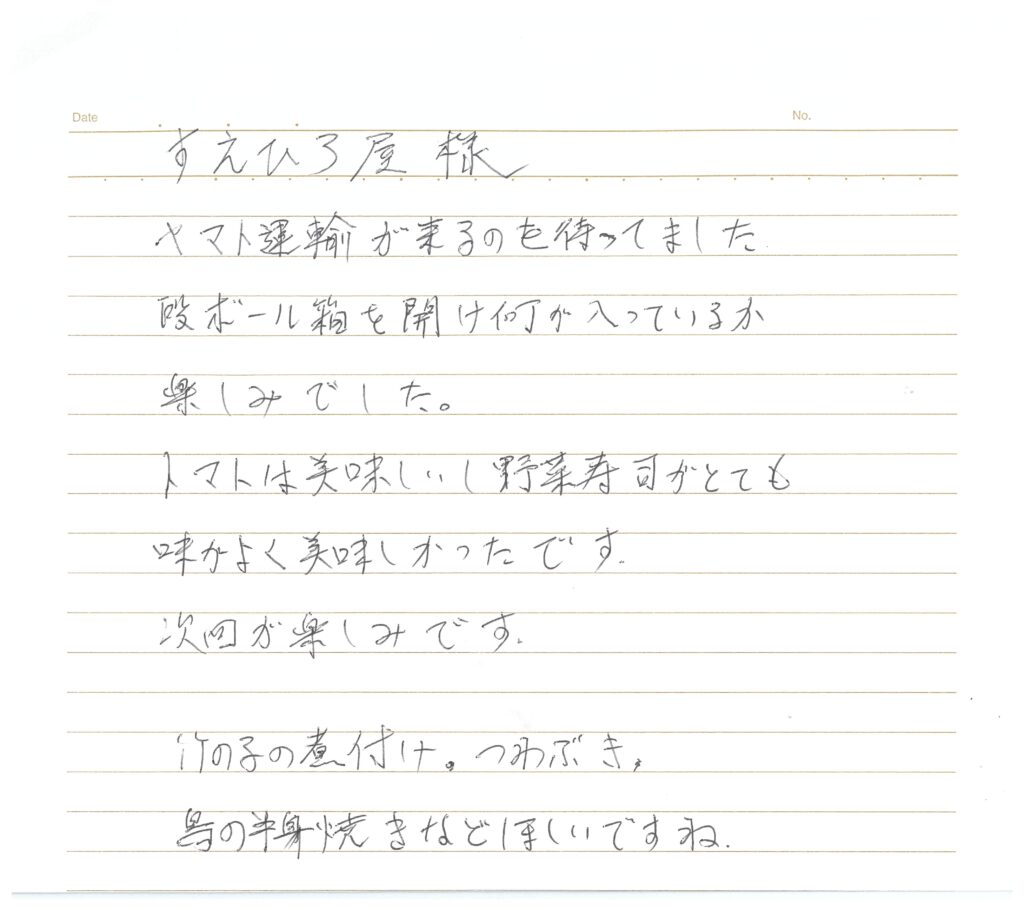 Date
No.
すえひろ屋 様
ヤマト運輸が来るのを待ってました
段ボール箱を開け何が入っているか
楽しみでした。
トマトは美味しいし野菜寿司がとても
味がよく美味しかったです.
次回が楽しみです.
竹の子の煮付け。つわぶき,
鳥の半身焼きなどほしいですね.